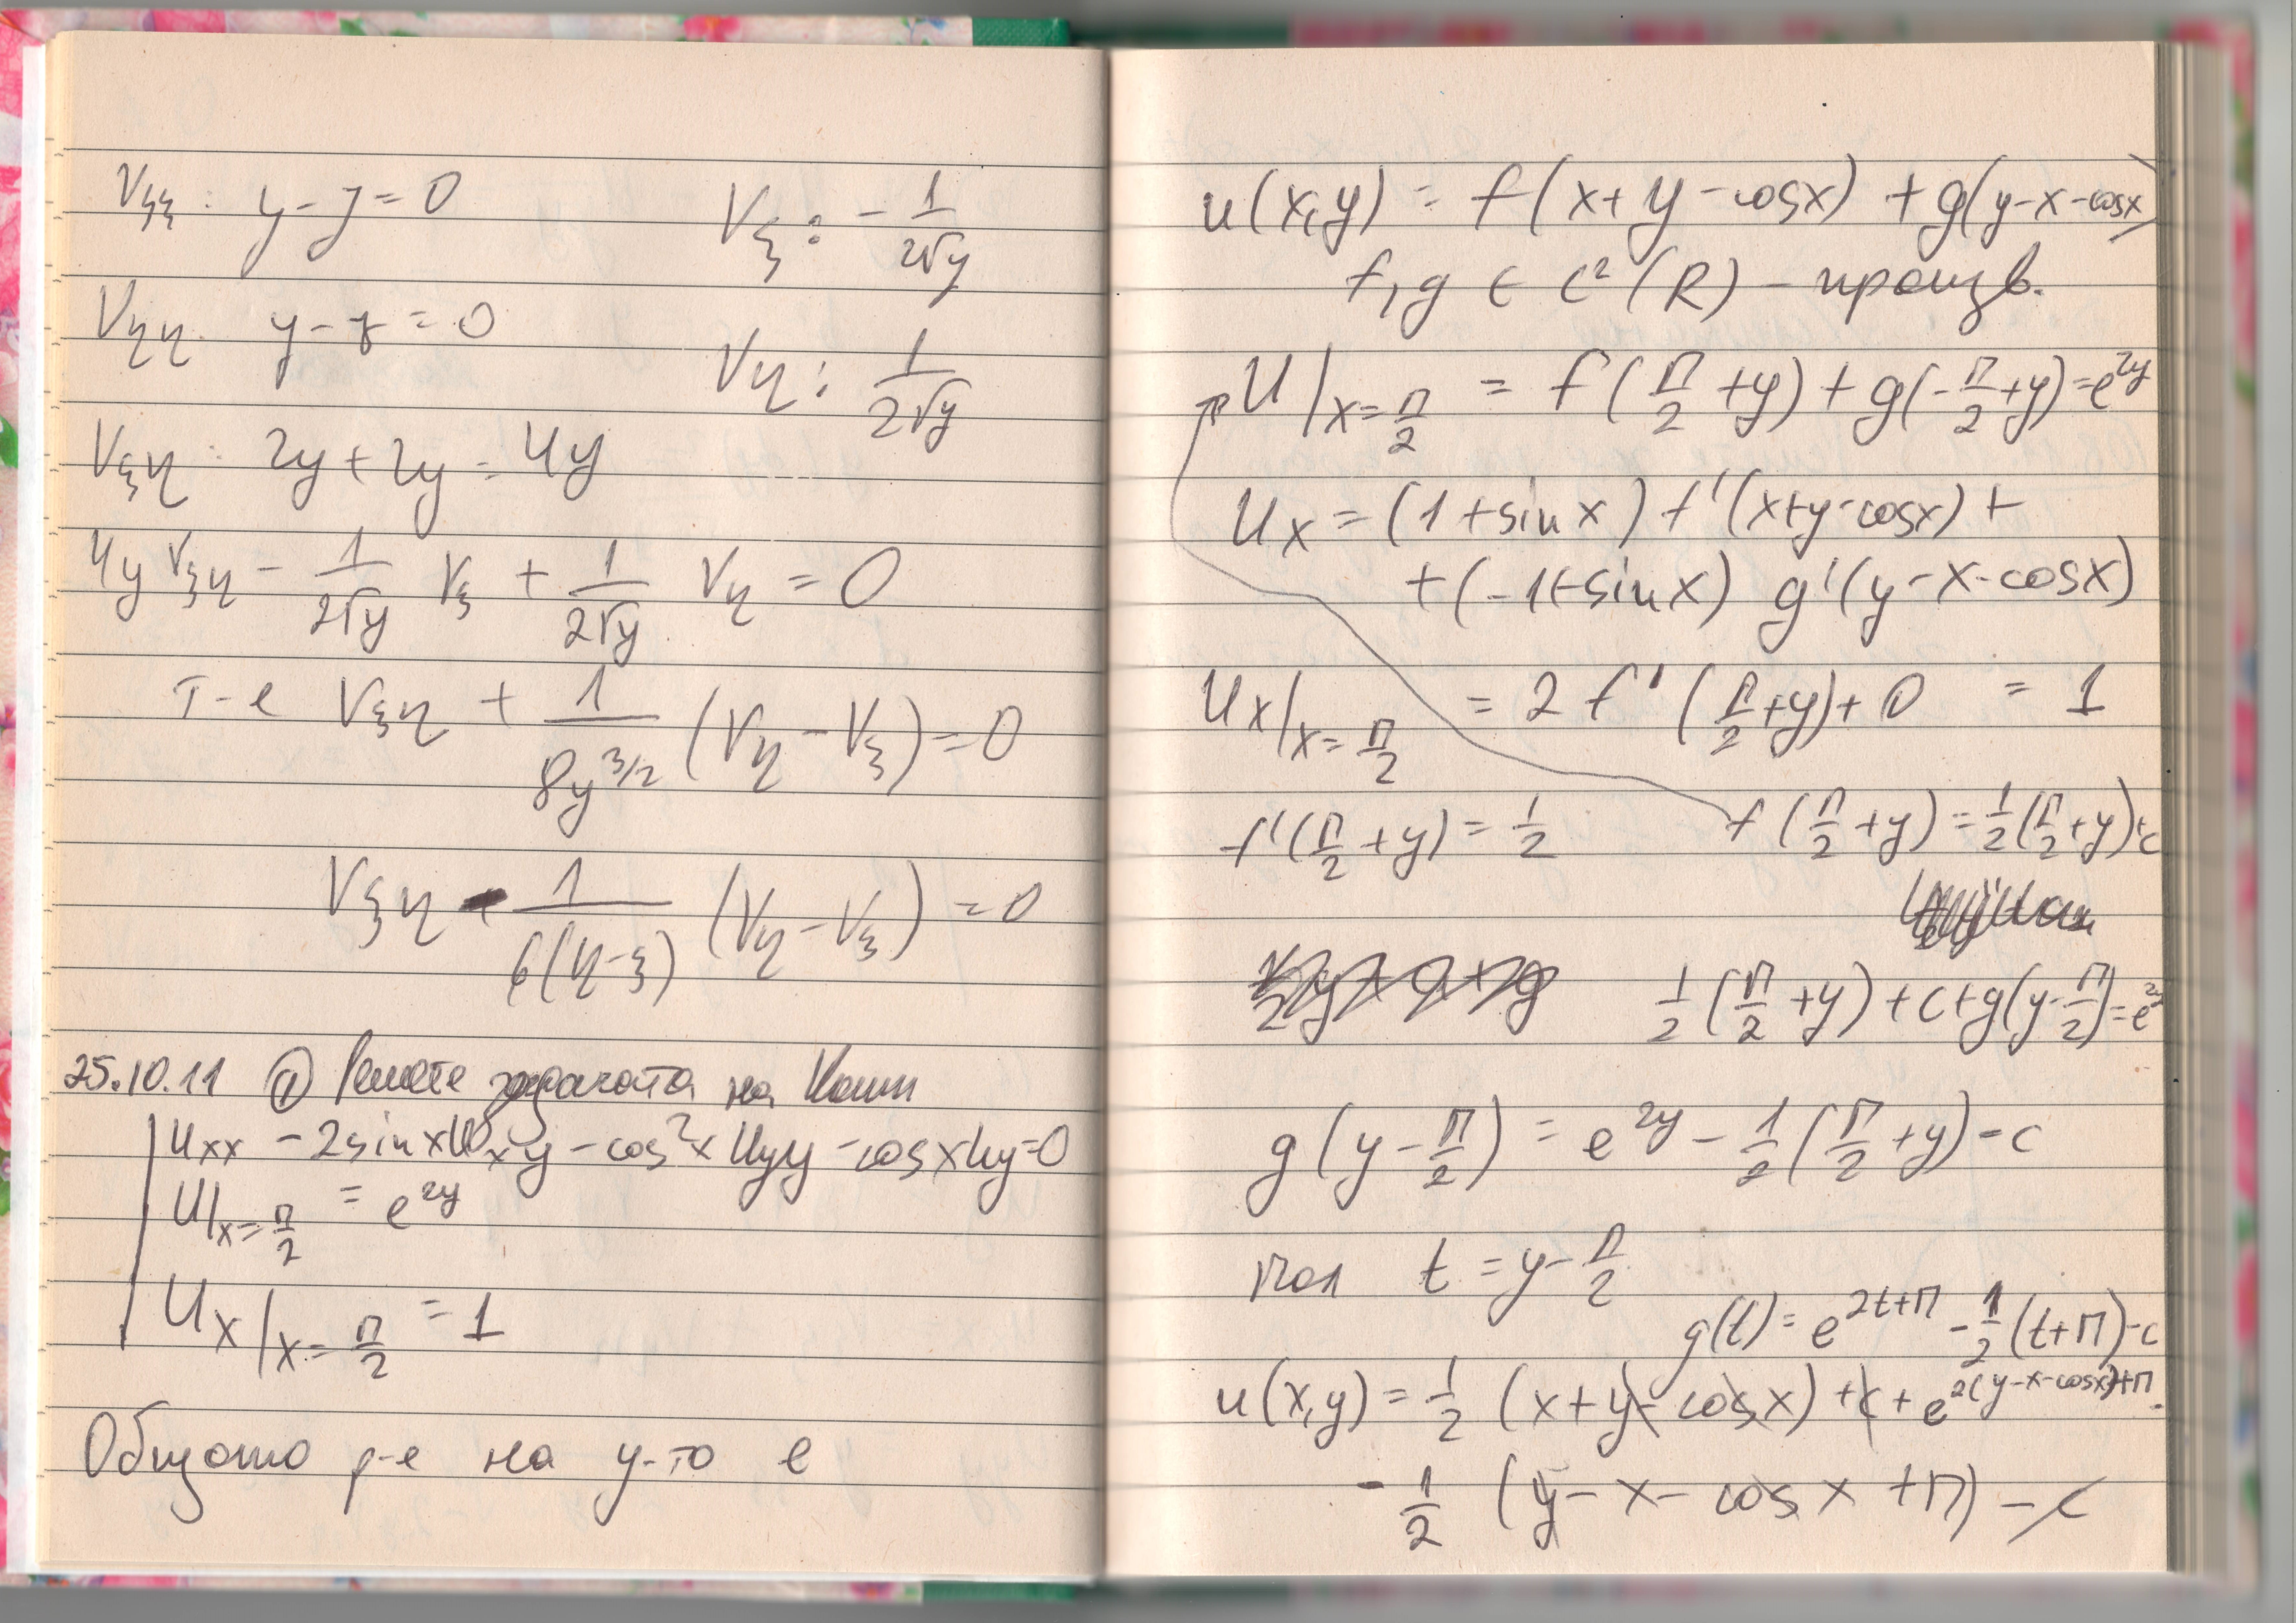 V_ξξ : y - y = 0
V_ξ : - 1/(2√y)
V_ηη : y - y = 0
V_η : 1/(2√y)
V_ξη : 2y + 2y = 4y
4y V_ξη - 1/(2√y) V_ξ + 1/(2√y) V_η = 0
т-е V_ξη + 1/(8y^(3/2)) (V_η - V_ξ) = 0
V_ξη - 1/(6(η-ξ)) (V_η - V_ξ) = 0
25.10.11 ① Решете задачата на Коши
u_xx - 2sinx u_xy - cos²x u_yy - cosx u_y = 0
u|_(x=π/2) = e^(2y)
u_x|_(x=π/2) = 1
Общото р-е на у-то е
u(x,y) = f(x+y-cosx) + g(y-x-cosx)
f,g ∈ C²(R) - произв.
u|_(x=π/2) = f(π/2+y) + g(-π/2+y) = e^(2y)
u_x = (1+sinx) f'(x+y-cosx) +
+(-1+sinx) g'(y-x-cosx)
u_x|_(x=π/2) = 2f'(π/2+y) + 0 = 1
f'(π/2+y) = 1/2 f(π/2+y) = 1/2(π/2+y)+c
1/2(π/2+y)+c+g(y-π/2) = e^(2y)
g(y-π/2) = e^(2y) - 1/2(π/2+y) - c
пол t = y-π/2
g(t) = e^(2t+π) - 1/2(t+π) - c
u(x,y) = 1/2 (x+y-cosx) + c + e^(2(y-x-cosx)+π) -
- 1/2 (y-x-cosx+π) - c